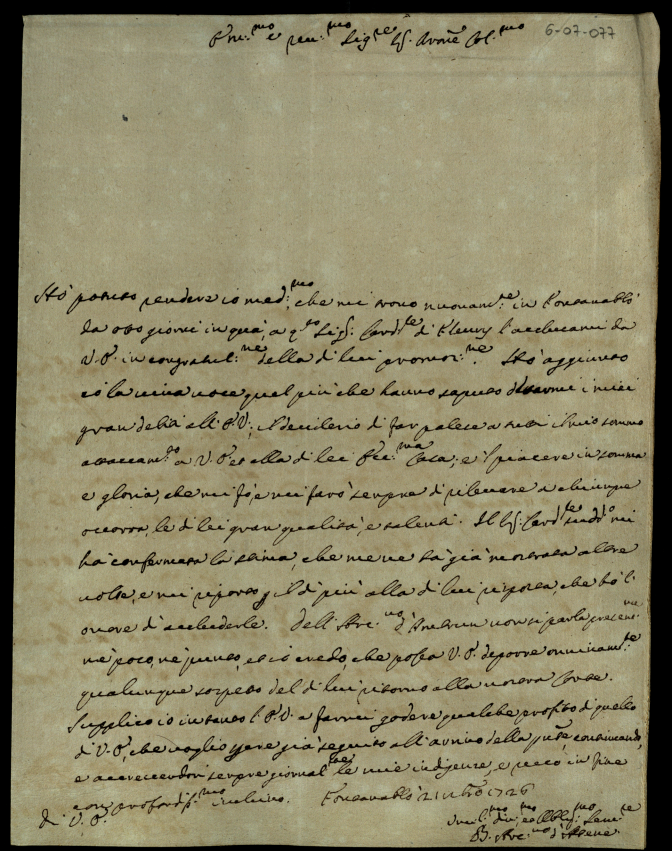 Em:mo e reu:mo Sig:re Sig: Prone Col:mo
6-07-077
Hò potuto rendere io med:mo, che mi trovo nuovam:te in Fontanablò
da otto giorni in quà, a q:to Sig: Card:le di Fleury l'acclusami da
V. E. in congratul:ne della di lui promoz:ne. Hò aggiunto
cò la viva voce quel più che hanno saputo i miei
gran debiti all'E. V.; il desiderio di far palese a tutti il mio sommo
attaccam:to a V. E. et alla di lei Ecc:ma Casa; e il piacere in somma
e gloria, che mi fò, e mi farò sempre di rilevare a chiunque
occorra, le di lei gran qualità, e talenti. Il Sig: Card:le sud:to mi
hà confermata la stima, che me ne hà già mostrata altre
volte, e mi riporto il di più alla di lui risposta, che hò l'
onore d'accluderle. Dell'Arc:vo d'Ambrun non si parla presen:ne
nè poco, nè punto, et io credo, che possa V. E. deporre onninam:te
qualunque sospetto del di lui ritorno alla nostra Corte.
Supplico io intanto l'E. V. a farmi godere qualche profitto di quello
di V. E., che voglio essere già seguito all'arrivo della pnte, continuando,
e accrescendosi sempre giornal:te le mie indigenze, e resto in fine
con profondiss:mo inchino. Fontanablò 21 nbre 1726
di V. E.
Umil:mo div:mo et obblig:mo Serv:re
B. Arc:vo d'Atene